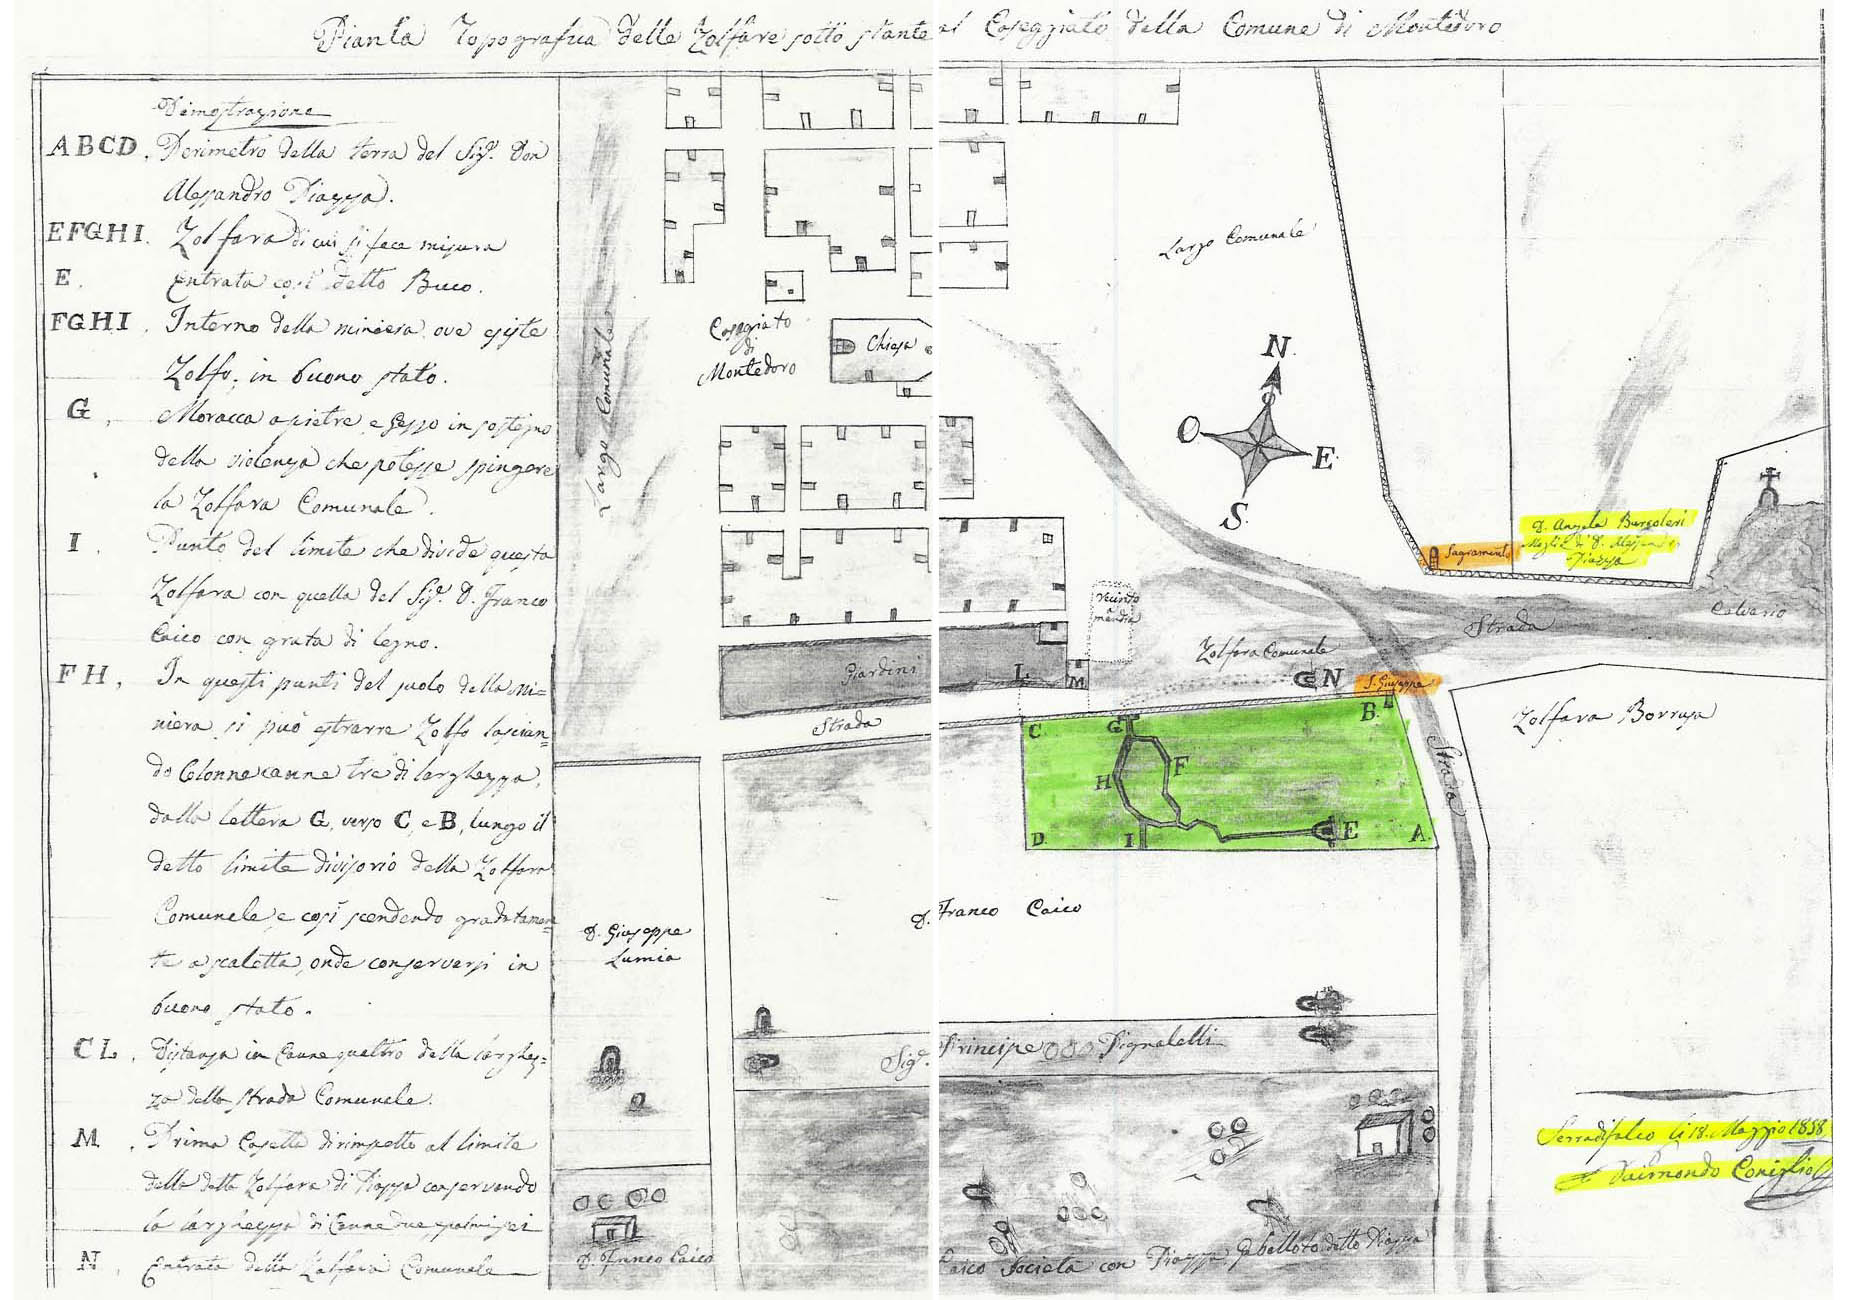 Pianta Topografica delle Zolfare sotto stante al Caseggiato della Comune di Montedoro
Dimostrazione
ABCD. Perimetro della terra del Sigr. Don
Alessandro Piazza.
EFGHI. Zolfara di cui si fece misura
E. Entrata così detto Buco.
FGHI. Interno della miniera ove esiste
Zolfo, in buono stato.
G. Moracca a pietre e gesso in sostegno
della violenza che potesse spingere
la Zolfara Comunale.
I. Punto del limite che divide questa
Zolfara con quella del Sigr. D. Franco
Caico con grata di legno.
FH. In questi punti del suolo della mi=
niera si può estrarre Zolfo lascian=
do Colonne canne tre di larghezza,
dalla lettera G, verso C, e B, lungo il
detto limite divisorio della Zolfara
Comunale, e così scendendo gradatamen=
te a scaletta, onde conservarsi in
buono stato.
CL. Distanza in Canne quattro della larghez=
za della strada Comunele.
M. Prima Casetta dirimpetto al limite
della detta Zolfara di Piazza conservando
la larghezza di Canne due, palmi sei
N. Entrata della Zolfara Comunale
Largo Comunale
Caseggiato
di
Montedoro
Chiesa
Largo Comunale
N
O
E
S
Sagramento
D. Angela Bargoleri
Moglie di D. Alessandro
Piazza
Calvario
Strada
Zolfara Comunale
Giardini
L
M
N
S. Giuseppe
Strada
Zolfara Borruso
Strada
C
G
B
H
F
D
I
E
A
D. Franco Caico
D. Giuseppe
Lumia
Sigr. Principe Pignatelli
Serradifalco li 18. Maggio 1858
Raimondo Coniglio
D. Franco Caico
Caico Società con Piazza, Gabelloto detto Piazza